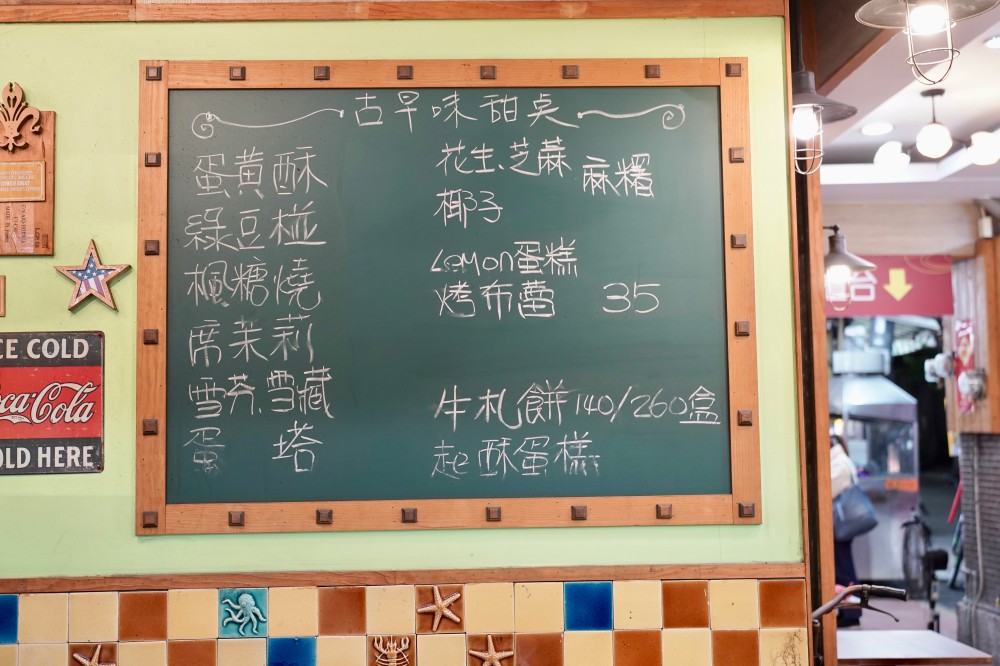 古早味甜点
蛋黄酥
綠豆椪
楓糖燒
席茉莉
雪芬、雪藏
蛋 塔
花生、芝蔴 麻糬
椰子
Lemon蛋糕
烤布蕾 35
牛札餅 140/260盒
起酥蛋糕
CE COLD
ca-Cola
OLD HERE
台